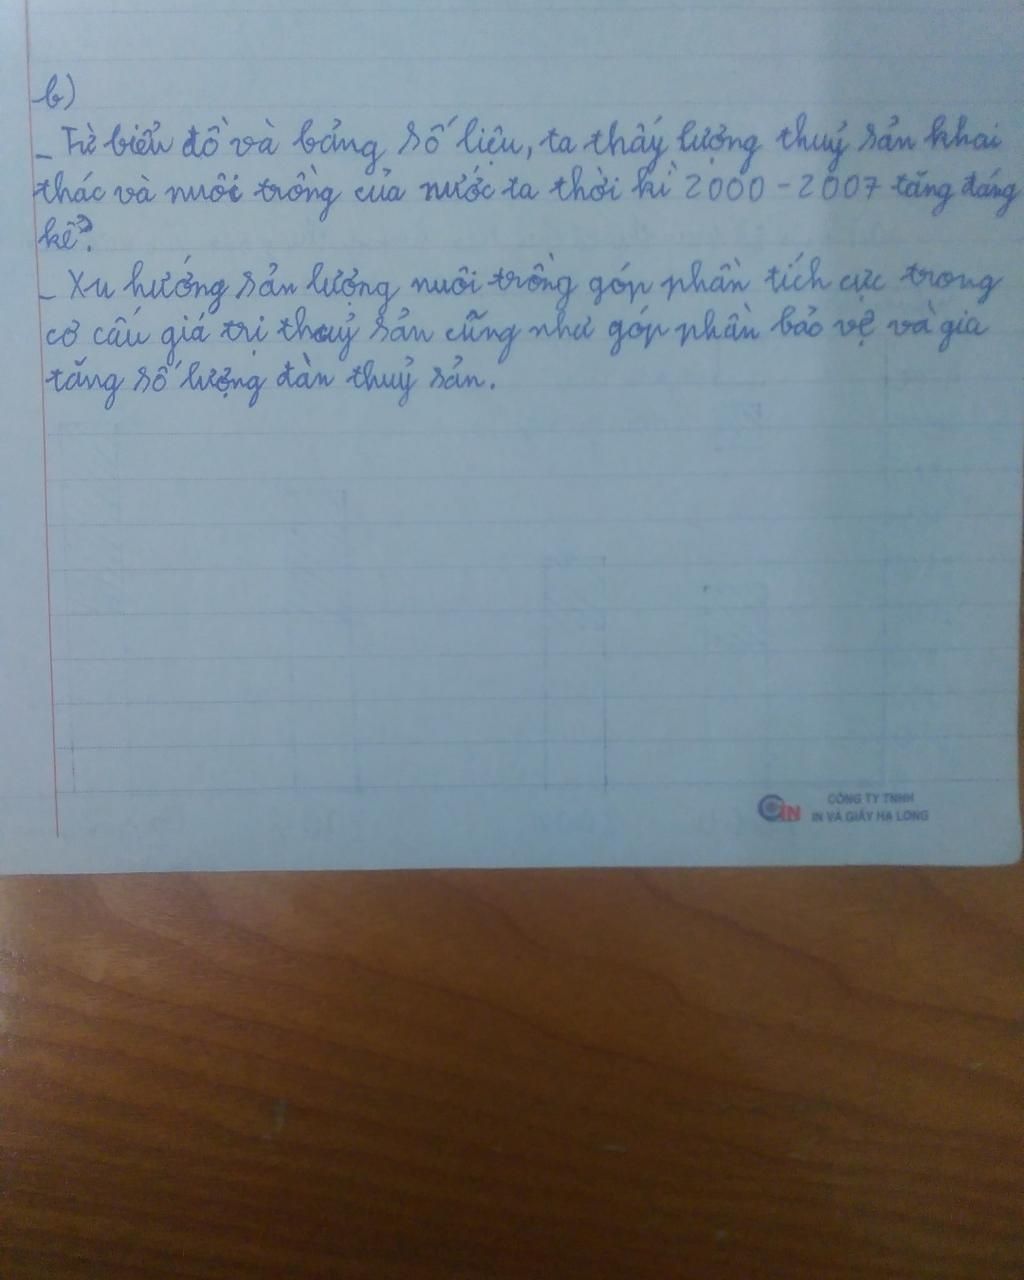 b)
- Từ biểu đồ và bảng số liệu, ta thấy lượng thuỷ sản khai
thác và nuôi trồng của nước ta thời kì 2000-2007 tăng đáng
kể.
- Xu hướng sản lượng nuôi trồng góp phần tích cực trong
cơ cấu giá trị thuỷ sản cũng như góp phần bảo vệ và gia
tăng số lượng đàn thuỷ sản.
CÔNG TY TNHH
IN VÀ GIẤY HẠ LONG